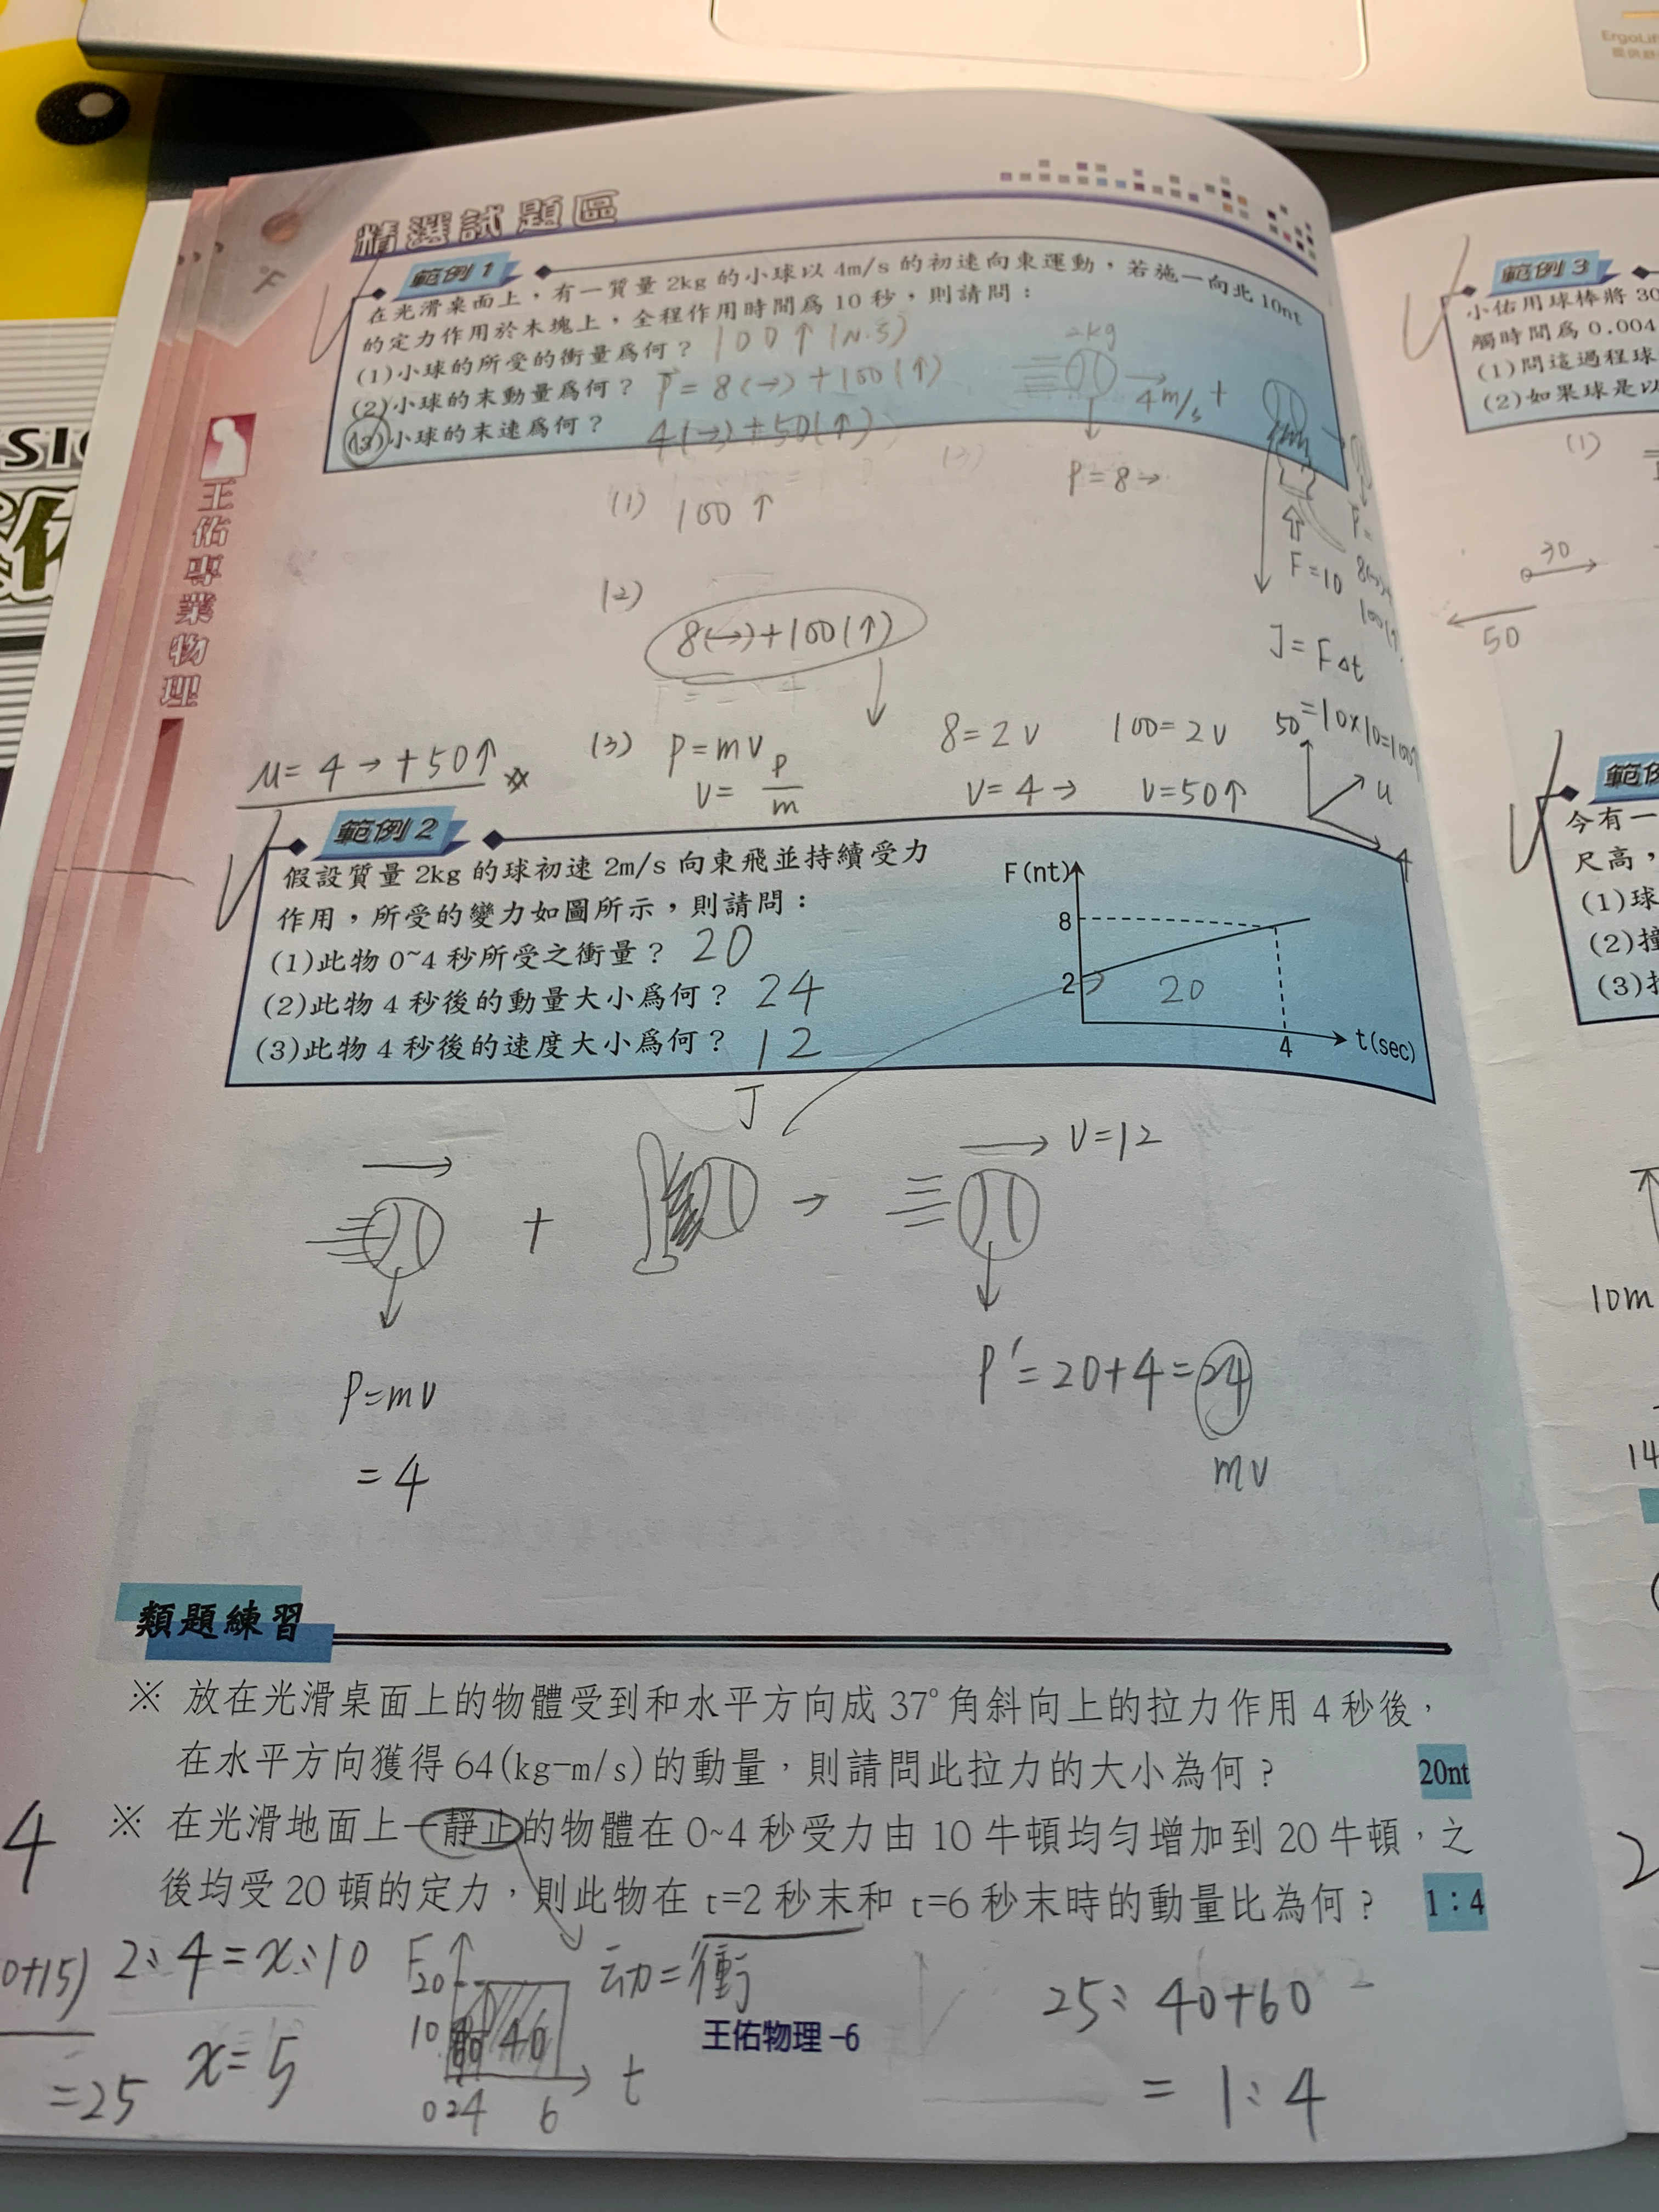 ErgoLif
精選試題區
°F
範例 1
在光滑桌面上，有一質量 2kg 的小球以 4m/s 的初速向東運動，若施一向北 10nt
的定力作用於木塊上，全程作用時間為 10 秒，則請問：
(1)小球的所受的衝量為何？ 100↑(N.S)
(2)小球的末動量為何？ P = 8(→)+100(↑)
(3)小球的末速為何？ 4(→)+50(↑)
2kg
4m/s +
P=8→
(1) 100↑
F=10
J=F△t
=10×10=100↑
(2)
8(→)+100(↑)
(3) P=mv
V= P/m
8=2V
V=4→
100=2V
V=50↑
50
u
4
u=4→+50↑
王佑專業物理
範例 2
假設質量 2kg 的球初速 2m/s 向東飛並持續受力
作用，所受的變力如圖所示，則請問：
(1)此物 0~4 秒所受之衝量？ 20
(2)此物 4 秒後的動量大小為何？ 24
(3)此物 4 秒後的速度大小為何？ 12
F(nt)
8
2
20
4
t(sec)
J
+
→
V=12
P=mv
=4
P′=20+4=24
mv
類題練習
※ 放在光滑桌面上的物體受到和水平方向成 37°角斜向上的拉力作用 4 秒後，
在水平方向獲得 64(kg-m/s)的動量，則請問此拉力的大小為何？ 20nt
※ 在光滑地面上一靜止的物體在 0~4 秒受力由 10 牛頓均勻增加到 20 牛頓，之
後均受 20 頓的定力，則此物在 t=2 秒末和 t=6 秒末時的動量比為何？ 1：4
4
0+15)
=25
2:4=x:10
x=5
F
20
10
40
0 2 4 6
t
动=衝
25:40+60
=1:4
王佑物理-6
範例 3
小佑用球棒將 30
觸時間為 0.004
(1)問這過程球
(2)如果球是以
(1)
30
50
範例
今有一
尺高，
(1)球
(2)撞
(3)
10m
14
2